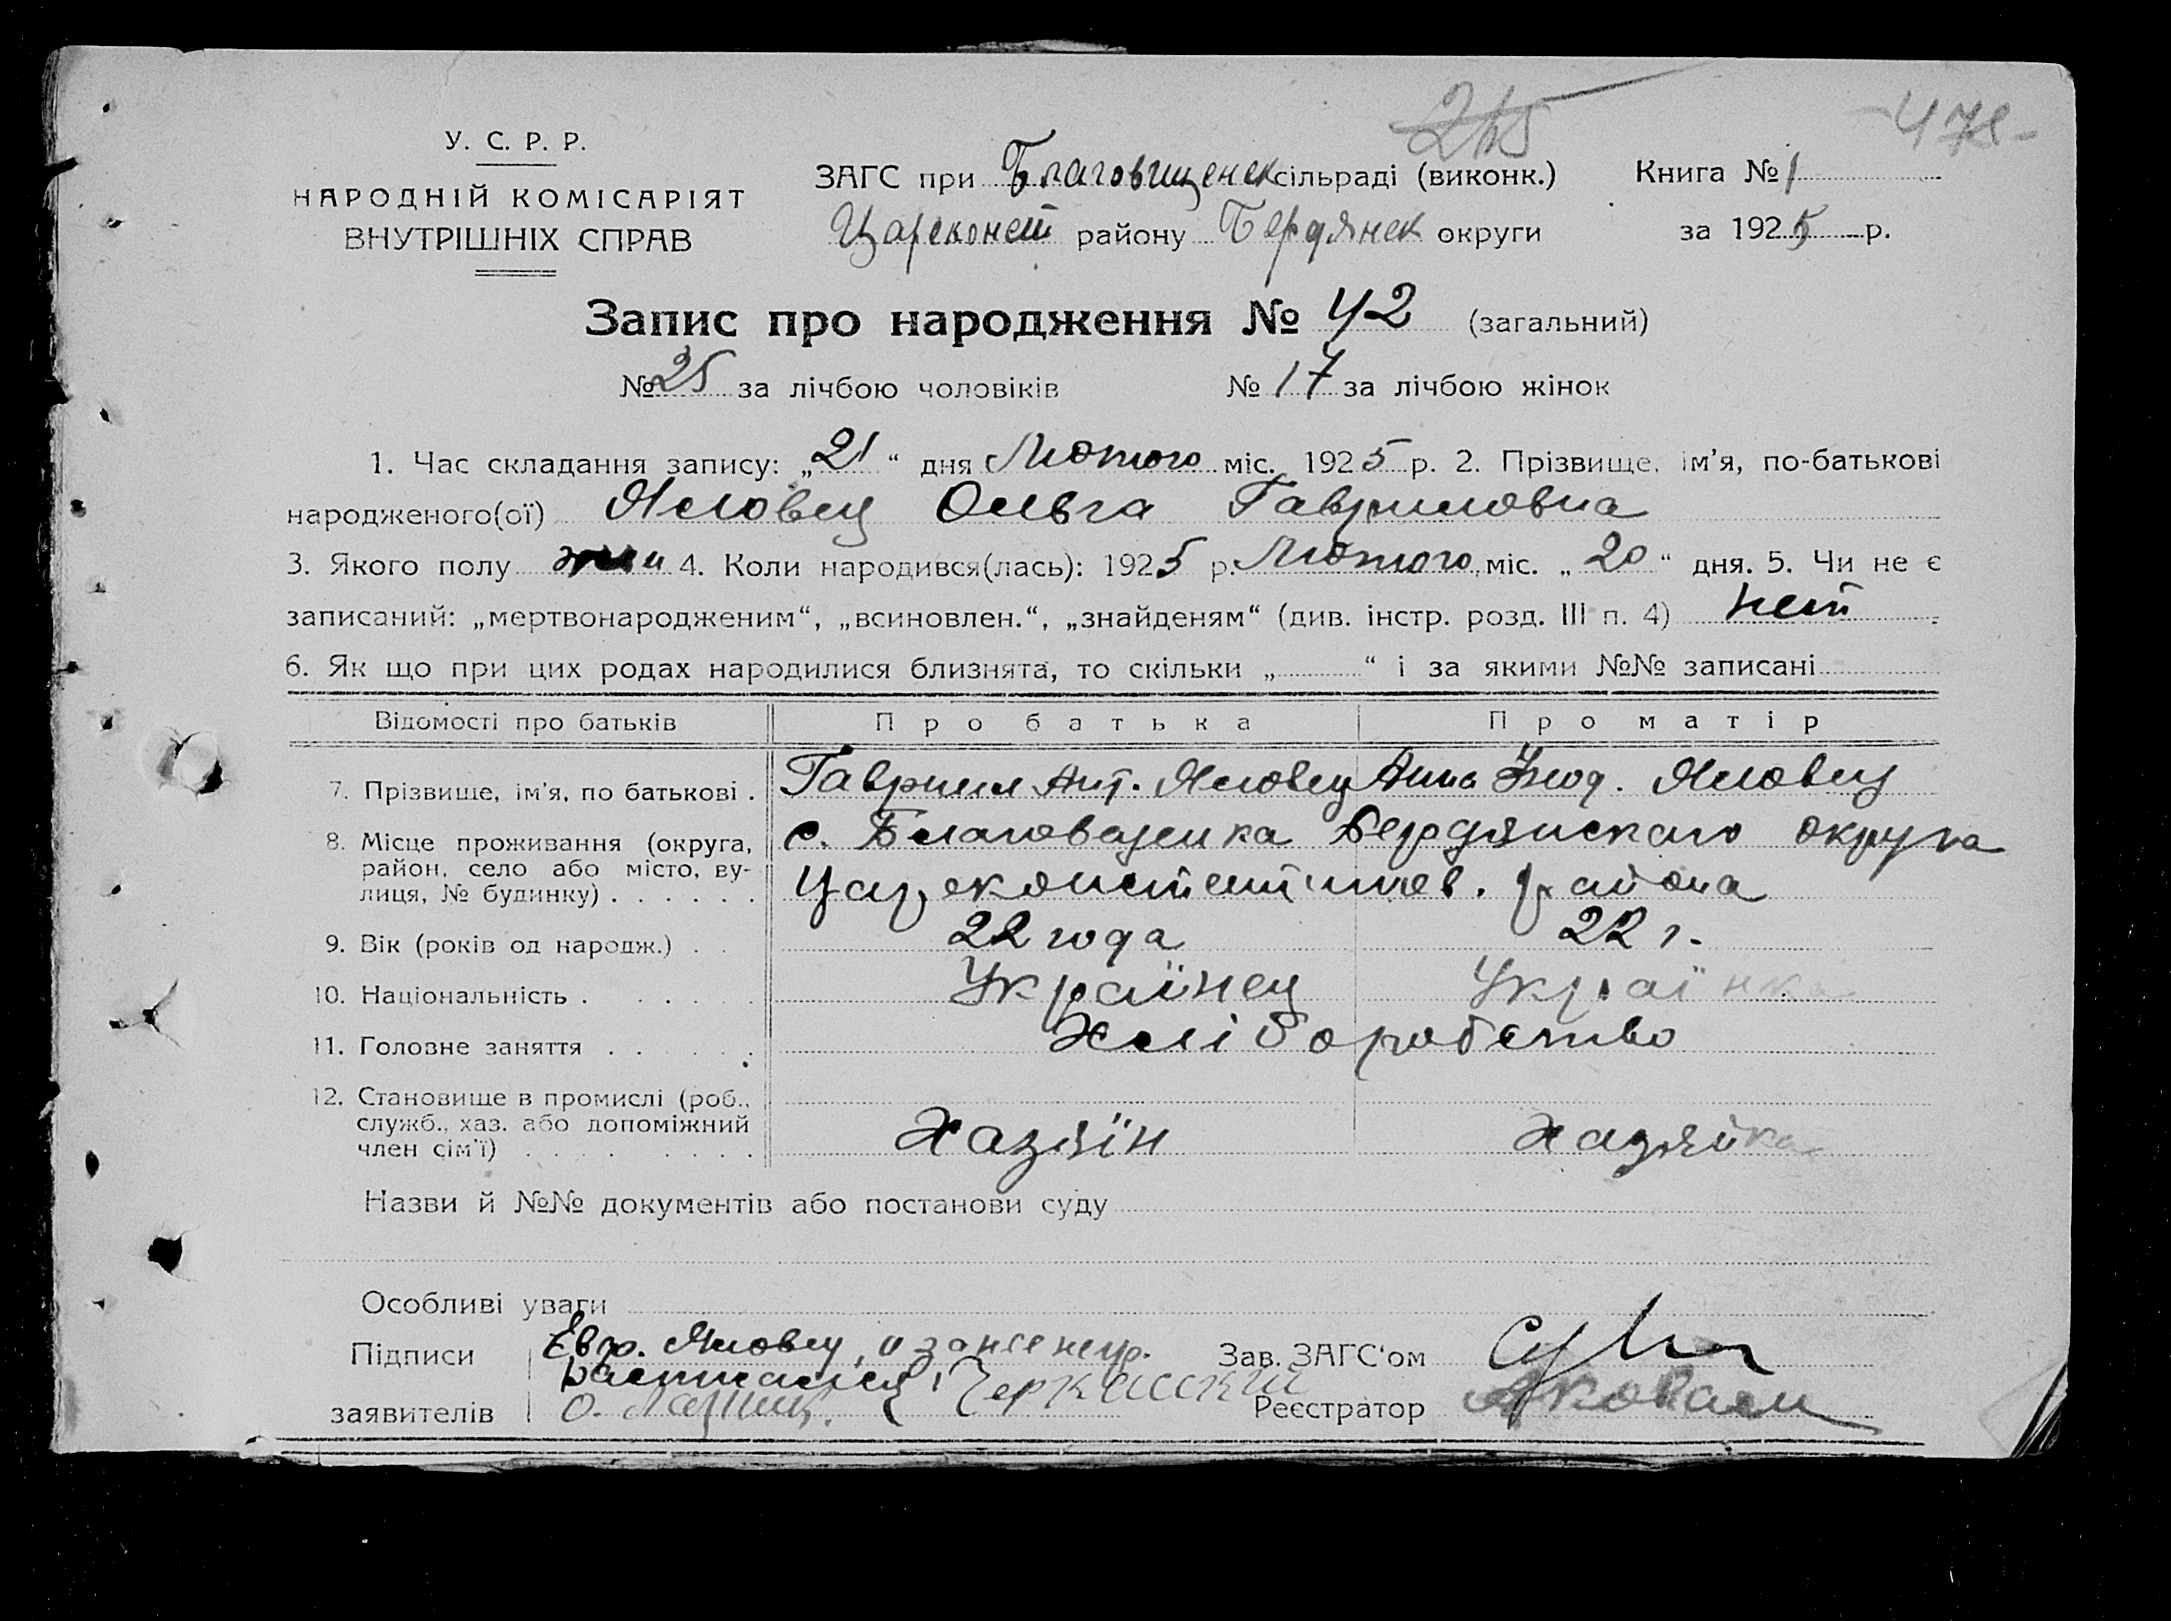 У. С. Р. Р.
НАРОДНІЙ КОМІСАРІЯТ
ВНУТРІШНІХ СПРАВ
215
47
ЗАГС при Благовищенск сільраді (виконк.) Книга № 1
Цареконст району Бердянск округи за 1925 р.
Запис про народження № 42 (загальний)
№ 25 за лічбою чоловіків № 17 за лічбою жінок
1. Час складання запису: „21“ дня Лютого міс. 1925 р. 2. Прізвище, ім'я, по-батькові
народженого(ої) Яловец Ольга Гавриловна
3. Якого полу жен 4. Коли народився(лась): 1925 р. Лютого міс. „20“ дня. 5. Чи не є
записаний: „мертвонародженим“, „всиновлен.“, „знайденям“ (див. інстр. розд. III п. 4) нет
6. Як що при цих родах народилися близнята, то скільки „ “ і за якими №№ записані
Відомості про батьків Про батька Про матір
7. Прізвище, ім'я, по батькові . Гавриил Ант. Яловец Анна Яловец
8. Місце проживання (округа, район, село або місто, ву- лиця, № будинку) . . . . . . с. Благовещенка Бердянскаго округа
Цареконстентинов. района
9. Вік (років од народж.) . . 22 года 22 г.
10. Національність . . . . . . Українец Українка
11. Головне заняття . . . . . . Хліборобство
12. Становище в промислі (роб., служб., хаз. або допоміжний член сім'ї) . . . . . . . . Хазяїн Хазяйка
Назви й №№ документів або постанови суду
Особливі уваги
Підписи Яловец, а за нее негр. Зав. ЗАГС'ом
расписался Черкасский
заявителів Реєстратор